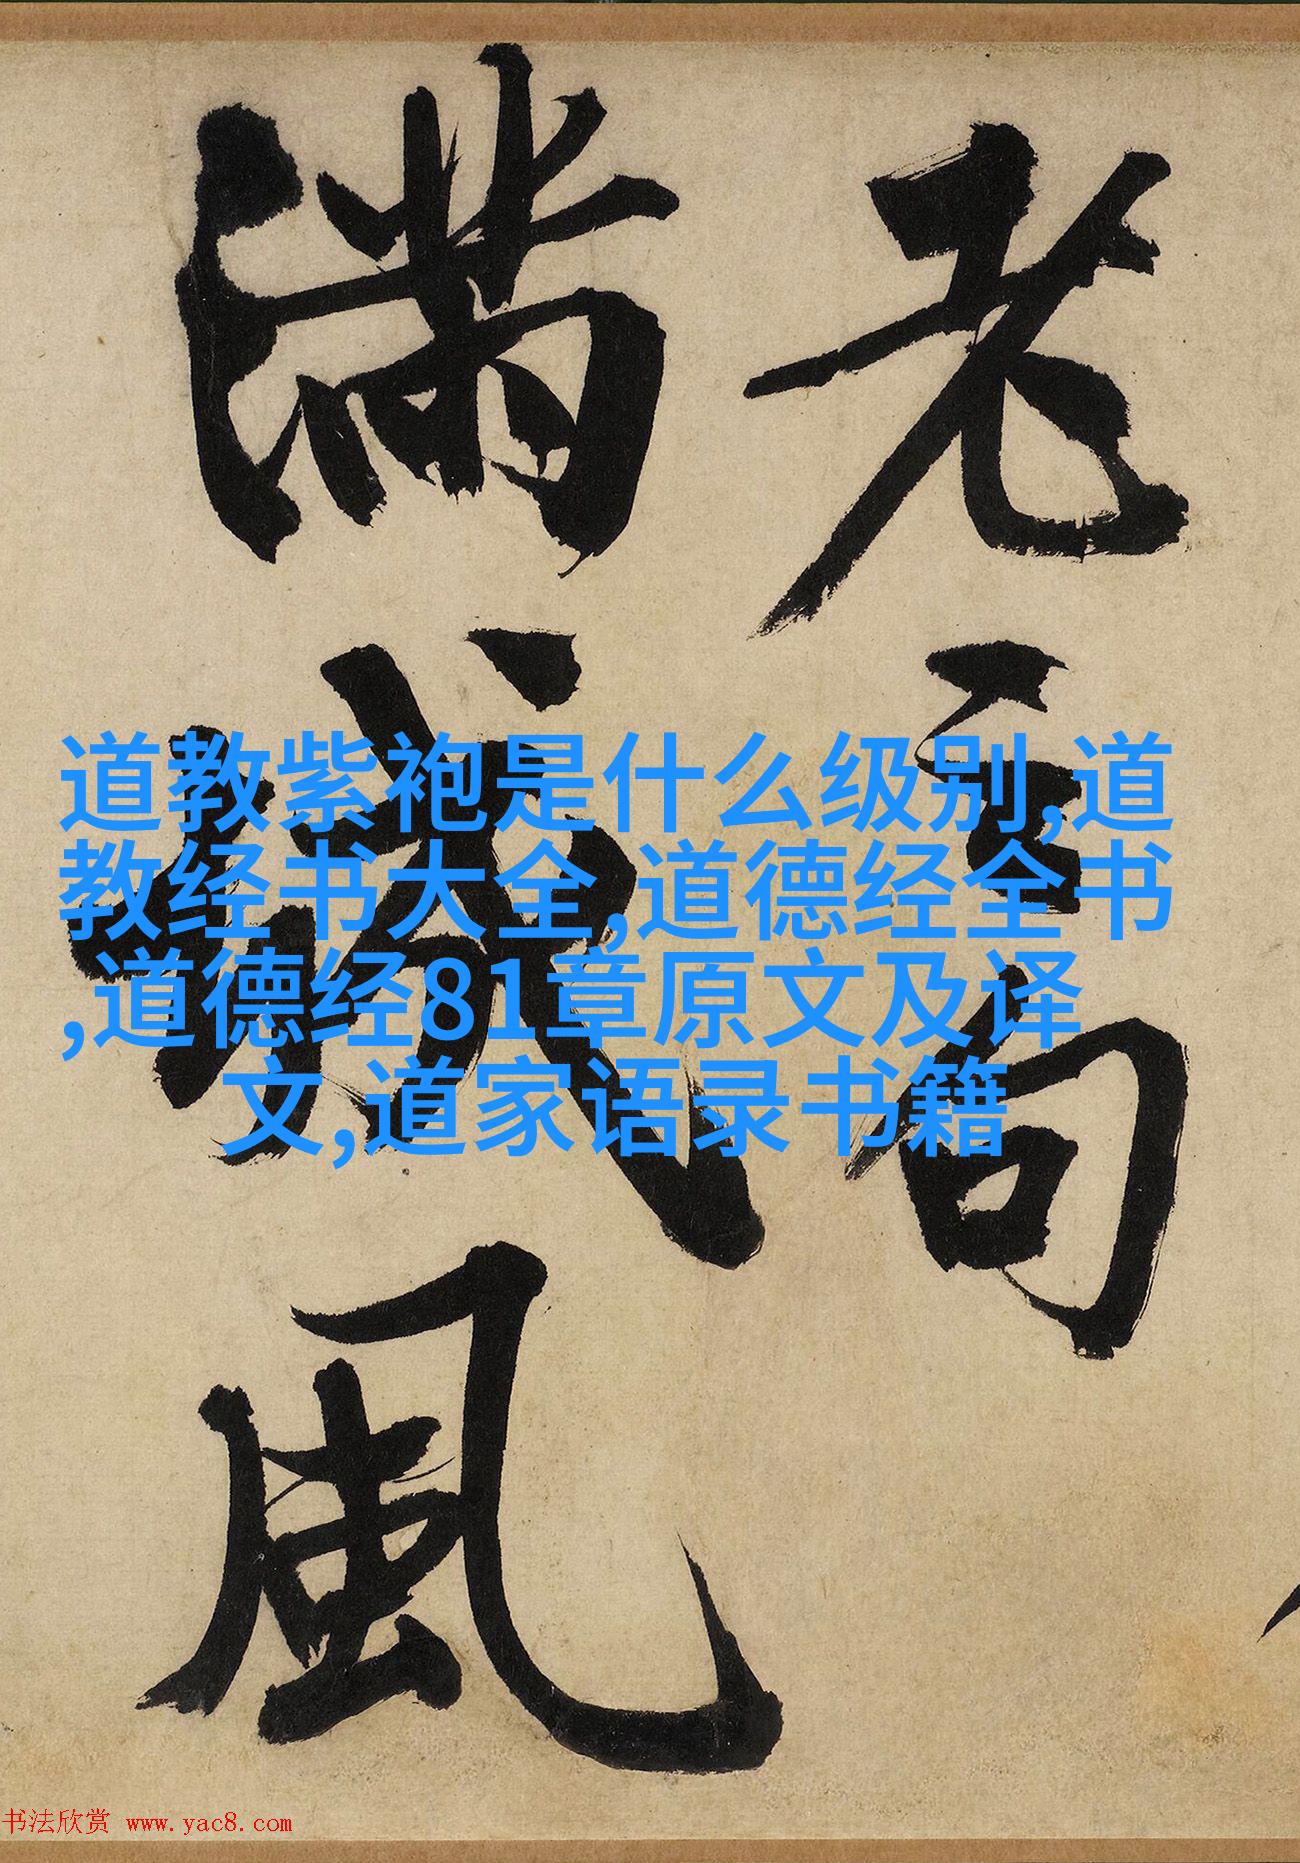 老句
满城風
道教紫袍是什么级别,道
教经书大全,道德经全书
,道德经81章原文及译
文,道家语录书籍
书法欣赏 www.yac8.com